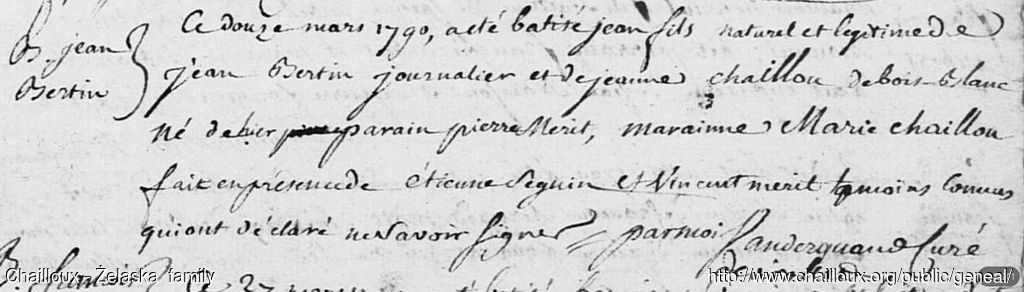 B. jean
Bertin
Ce douze mars 1790, a eté batisé jean fils naturel et legitime de
jean Bertin journalier et de jeanne chaillou de bois Blanc
né de hier parain pierre Merit, marainne Marie chaillou
fait en présence de étienne Seguin et Vincent merit temoins connus
qui ont déclaré ne savoir signer par moi curé
Chailloux - Żelaska family
http://www.chailloux.org/public/geneal/